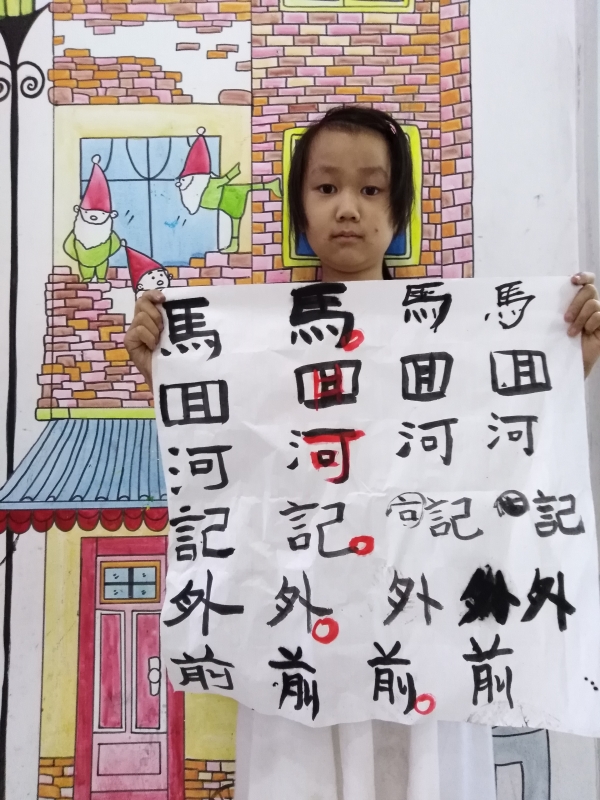 馬 馬 馬 馬
囬 囬 囬 囬
河 河 河 河
記 記 記 記
外 外 外 外
前 前 前 前